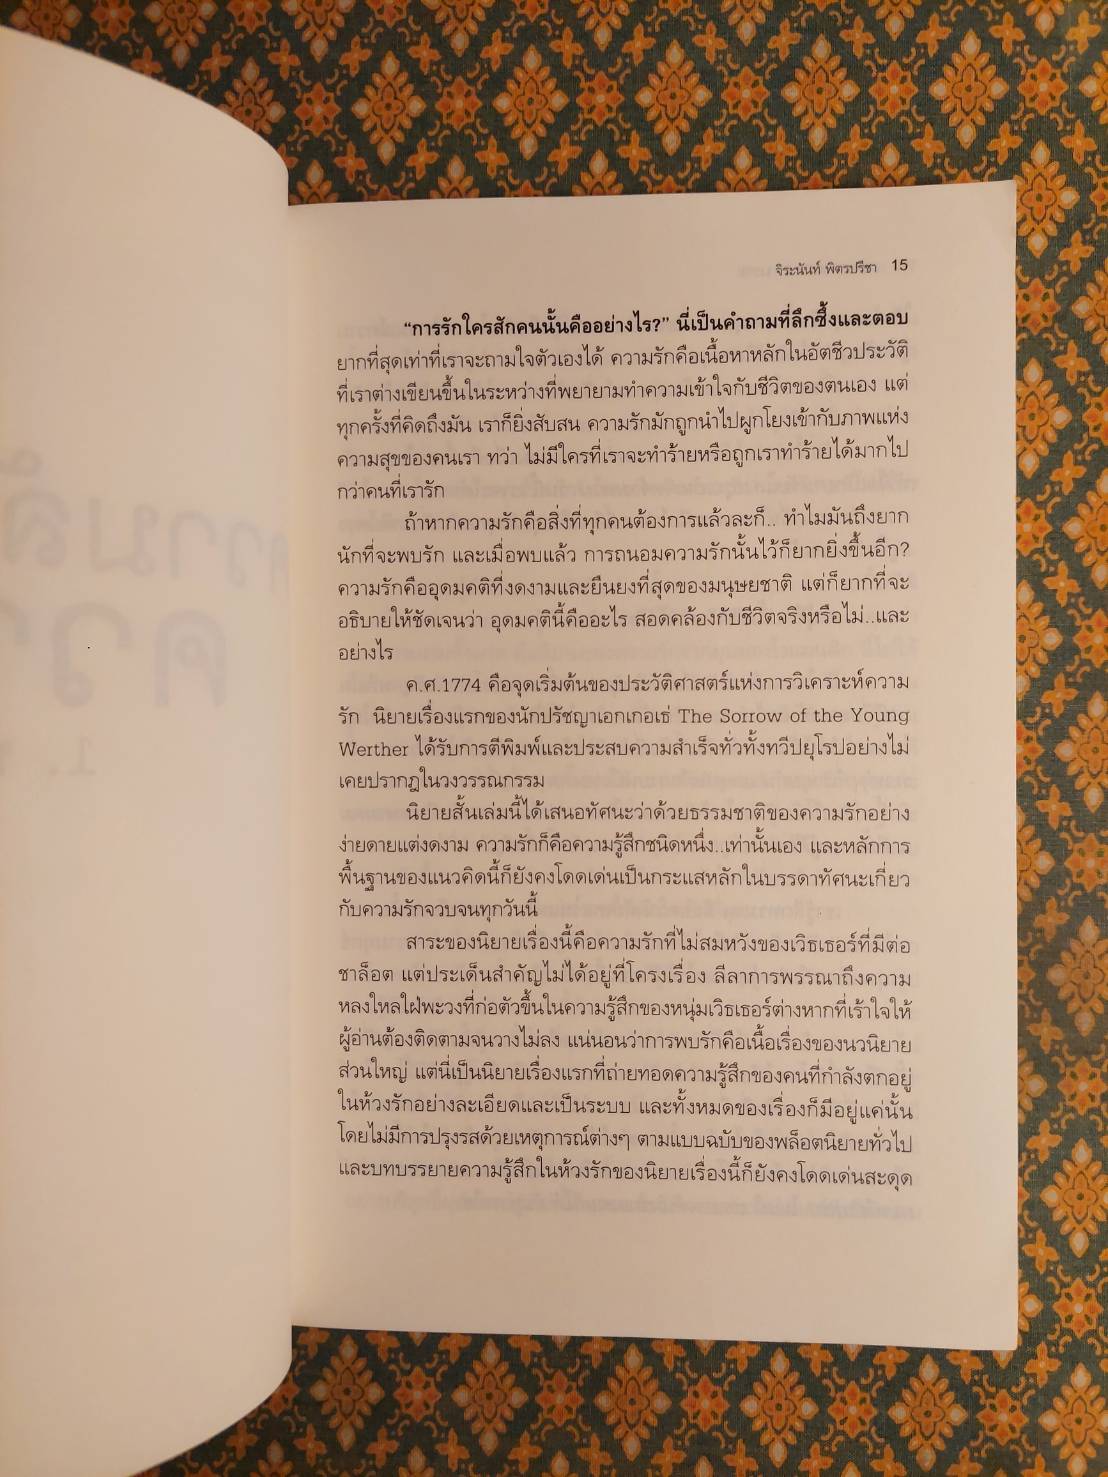 จิระนันท์ พิตรปรีชา 15
“การรักใครสักคนนั้นคืออย่างไร?” นี่เป็นคำถามที่ลึกซึ้งและตอบ
ยากที่สุดเท่าที่เราจะถามใจตัวเองได้ ความรักคือเนื้อหาหลักในอัตชีวประวัติ
ที่เราต่างเขียนขึ้นในระหว่างที่พยายามทำความเข้าใจกับชีวิตของตนเอง แต่
ทุกครั้งที่คิดถึงมัน เราก็ยิ่งสับสน ความรักมักถูกนำไปผูกโยงเข้ากับภาพแห่ง
ความสุขของคนเรา ทว่า ไม่มีใครที่เราจะทำร้ายหรือถูกเราทำร้ายได้มากไป
กว่าคนที่เรารัก
ถ้าหากความรักคือสิ่งที่ทุกคนต้องการแล้วละก็.. ทำไมมันถึงยาก
นักที่จะพบรัก และเมื่อพบแล้ว การถนอมความรักนั้นไว้ก็ยากยิ่งขึ้นอีก?
ความรักคืออุดมคติที่งดงามและยืนยงที่สุดของมนุษยชาติ แต่ก็ยากที่จะ
อธิบายให้ชัดเจนว่า อุดมคตินี้คืออะไร สอดคล้องกับชีวิตจริงหรือไม่..และ
อย่างไร
ค.ศ.1774 คือจุดเริ่มต้นของประวัติศาสตร์แห่งการวิเคราะห์ความ
รัก นิยายเรื่องแรกของนักปรัชญาเอกเกอเธ่ The Sorrow of the Young
Werther ได้รับการตีพิมพ์และประสบความสำเร็จทั่วทั้งทวีปยุโรปอย่างไม่
เคยปรากฏในวงวรรณกรรม
นิยายสั้นเล่มนี้ได้เสนอทัศนะว่าด้วยธรรมชาติของความรักอย่าง
ง่ายดายแต่งดงาม ความรักก็คือความรู้สึกชนิดหนึ่ง..เท่านั้นเอง และหลักการ
พื้นฐานของแนวคิดนี้ก็ยังคงโดดเด่นเป็นกระแสหลักในบรรดาทัศนะเกี่ยว
กับความรักจวบจนทุกวันนี้
สาระของนิยายเรื่องนี้คือความรักที่ไม่สมหวังของเวิธเธอร์ที่มีต่อ
ชาล็อต แต่ประเด็นสำคัญไม่ได้อยู่ที่โครงเรื่อง ลีลาการพรรณาถึงความ
หลงใหลใฝ่พะวงที่ก่อตัวขึ้นในความรู้สึกของหนุ่มเวิธเธอร์ต่างหากที่เร้าใจให้
ผู้อ่านต้องติดตามจนวางไม่ลง แน่นอนว่าการพบรักคือเนื้อเรื่องของนวนิยาย
ส่วนใหญ่ แต่นี่เป็นนิยายเรื่องแรกที่ถ่ายทอดความรู้สึกของคนที่กำลังตกอยู่
ในห้วงรักอย่างละเอียดและเป็นระบบ และทั้งหมดของเรื่องก็มีอยู่แค่นั้น
โดยไม่มีการปรุงรสด้วยเหตุการณ์ต่างๆ ตามแบบฉบับของพล็อตนิยายทั่วไป
และบทบรรยายความรู้สึกในห้วงรักของนิยายเรื่องนี้ก็ยังคงโดดเด่นสะดุด